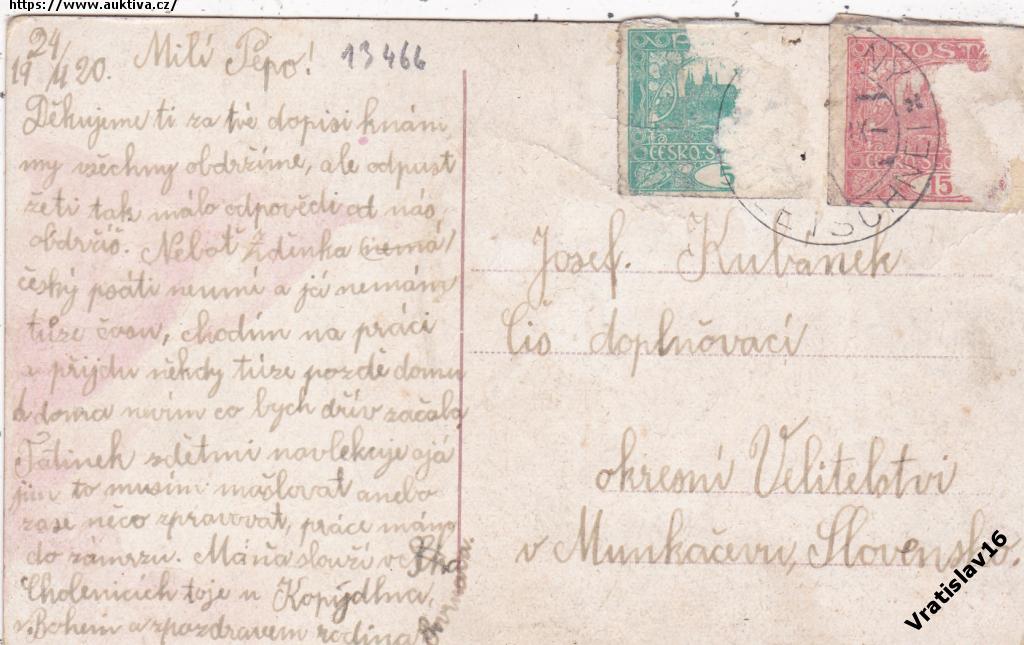 https://www.auktiva.cz/
24/
19 4 20.
Milí Pepo!
13466
Děkujeme ti za tvé dopisi knám,
my všechny obdržíme, ale odpust
žeti tak málo odpovědi od nás
obdržíš. Neboť Ždenka nemá
český psáti neumí a já nemám
túze času, chodím na práci
a přijdu někdy túze pozdě domu
a doma nevím co bych dřív začala
Tatínek sdětmi navlekuje a já
jim to musím mašlovat anebo
zase něco zpravovat, práce máme
do zámrzu. Máňa slouží v
Cholenicích toje u Kopýdlna,
s Bohem a spozdravem rodina
ČESKO-S
5
15
Josef. Kubanek
čis doplňovací
okresní Velitelství
v Munkačevu, Slovensko.
Vratislav16